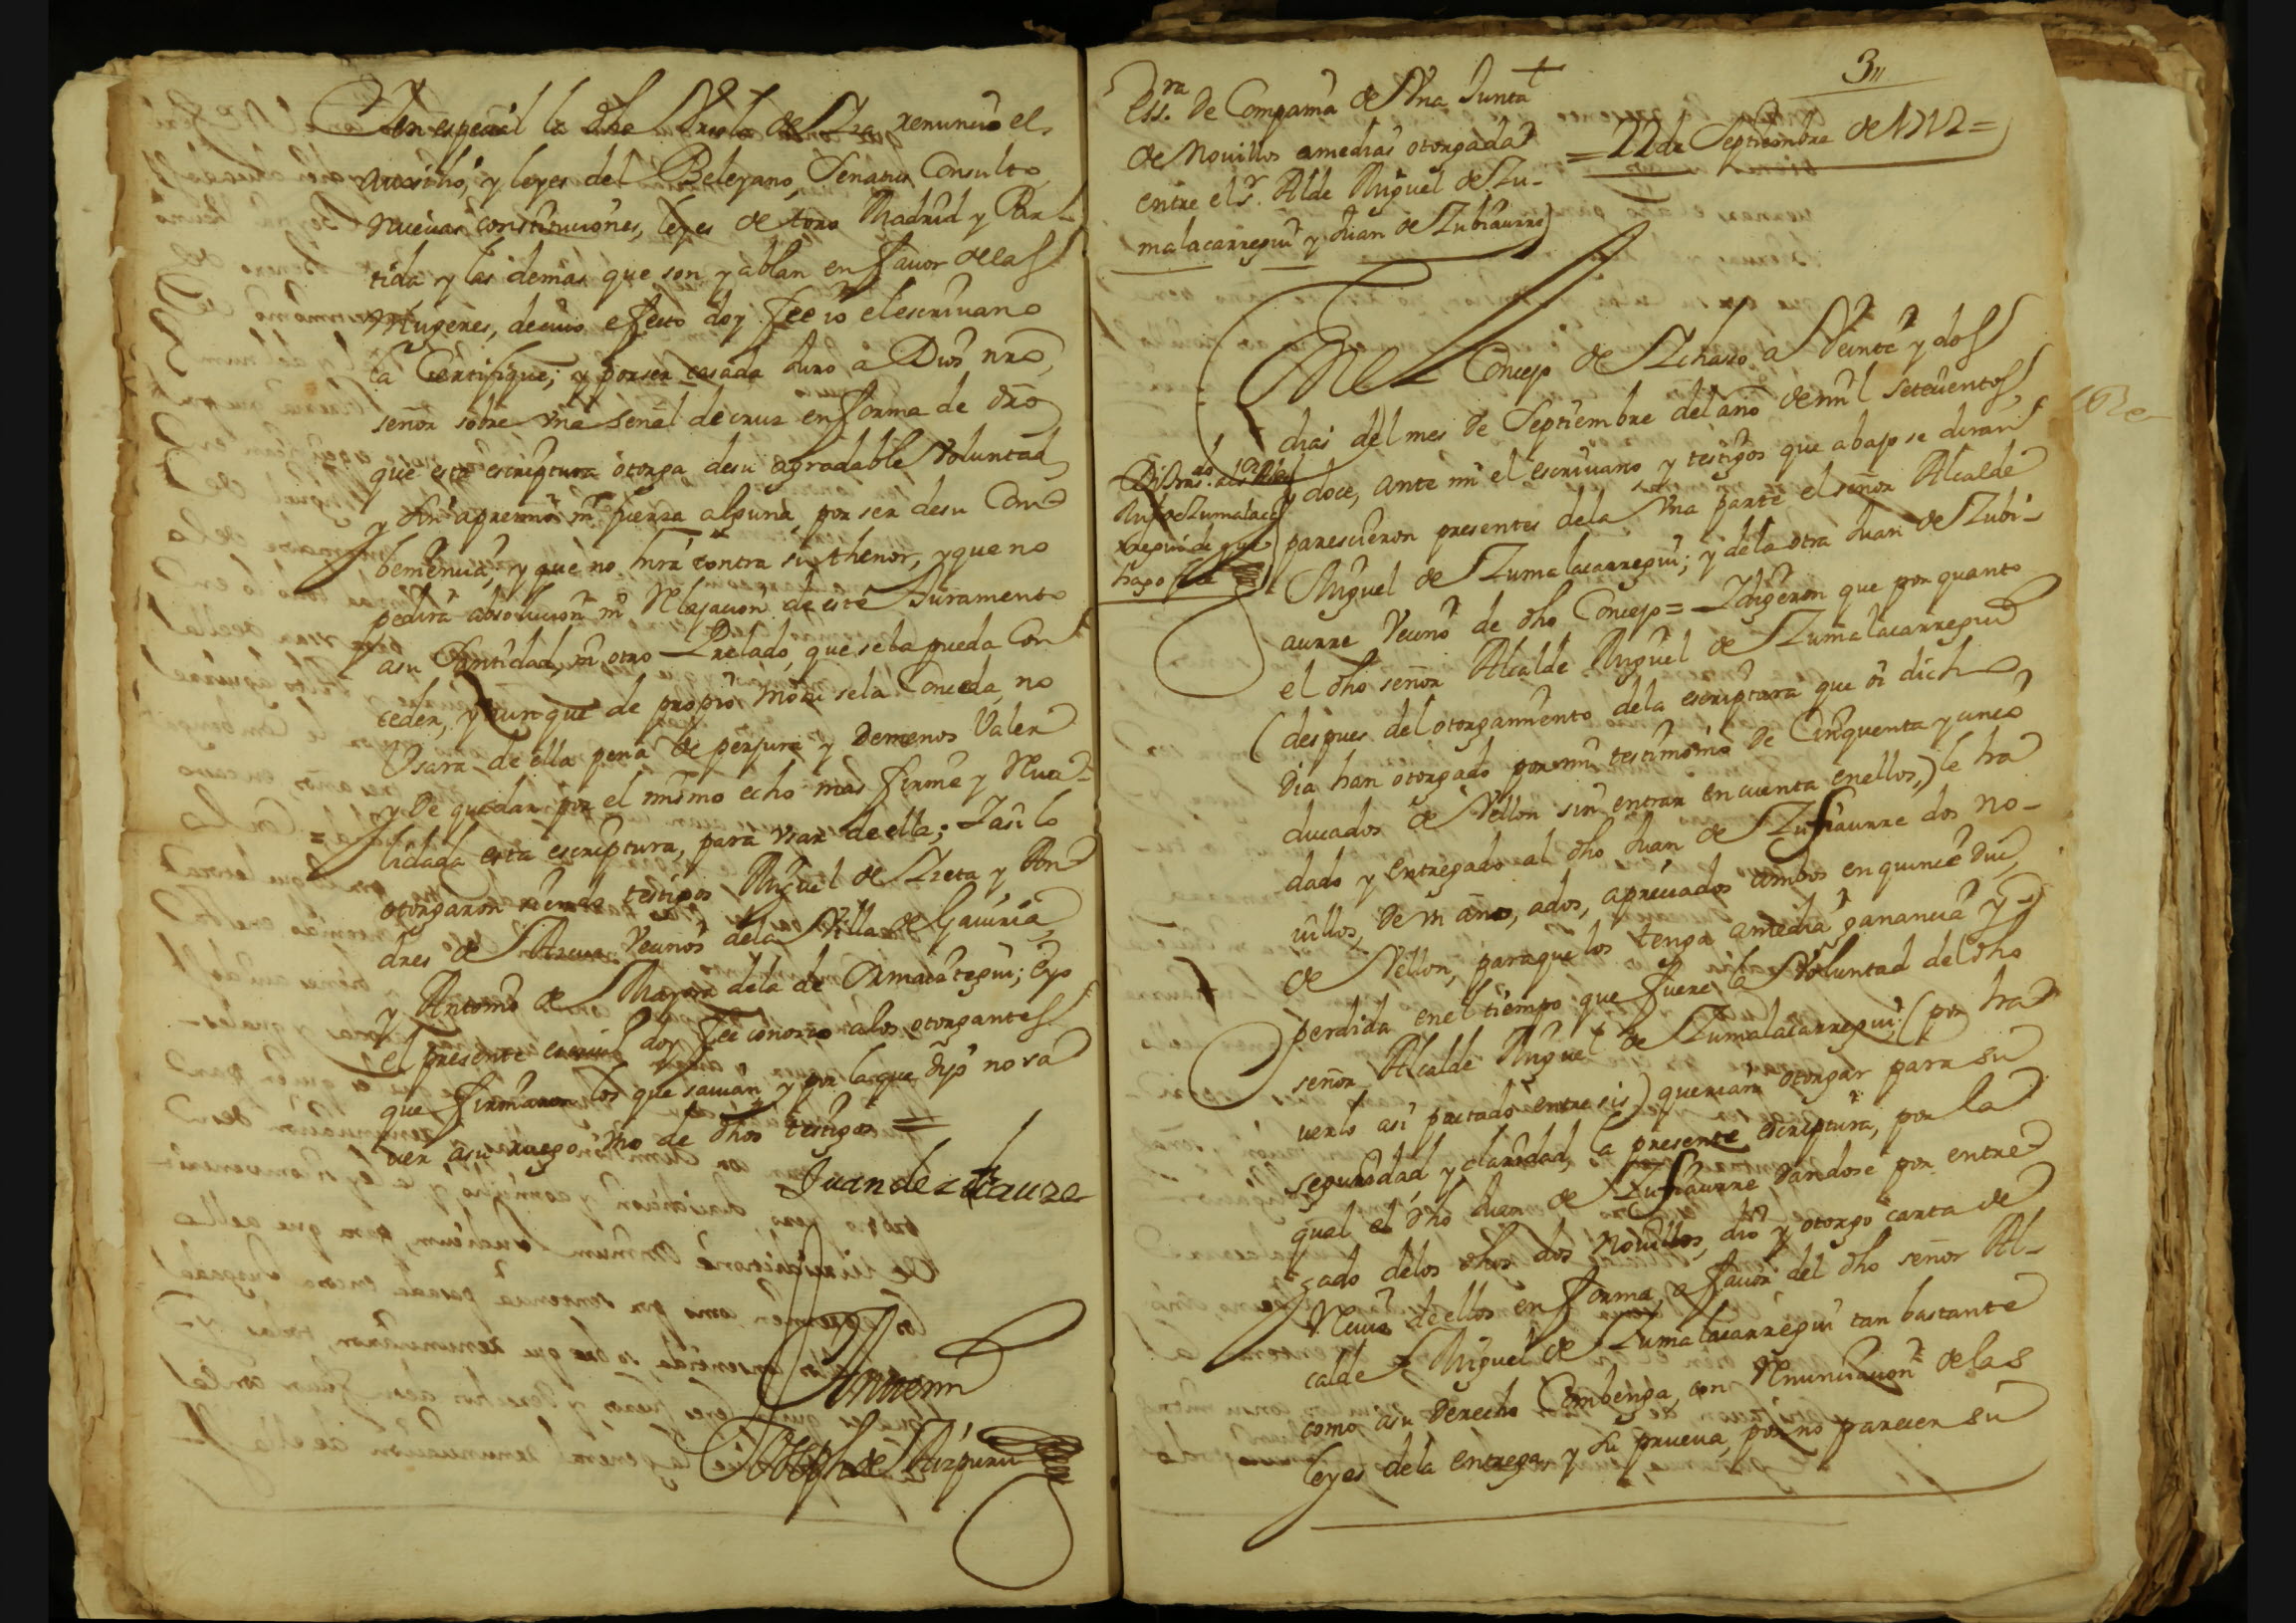 en especial la dha Ursola de Liza renunció el
auxilio, y leyes del Beleyano, Senatus Consulto,
nuevas constituciones, leyes de toro Madrid y Par-
tida y las demas que son y ablan en favor de las
Mugeres, de cuio efecto doy fee io el escrivano
la Certifique; y por ser casada Juro a Dios nro,
señor sobre una señal de cruz en forma de dro
que esta escriptura otorga de su agradable Voluntad
y sin apremio ni fuerza alguna por ser de su Con
bemencia, y que no hira contra su thenor, y que no
pedira absolucion ni Relajacion de este Juramento
a su Santidad, ni otro Prelado, que se la pueda Con
ceder, y aunque de propio motu se la Conceda, no
Usara de ella pena de perjura y de menos Valer
y de quedar por el mismo echo mas firme y Rua-
lidada esta escriptura, para usar de ella; Y asi lo
otorgaron siendo testigos Miguel de y An
dres de Vecinos de la Villa de Gaviria,
y Antonio de Mayora de la de Ormaiztegui; Eyo
el presente escriv doy fee conozco a los otorgantes
que firmaron los que savian y por la que dijo no sa
ver a su ruego uno de dhos testigos =
Juan de
Ante mi
Joseph de Aizpuru
3
Essra. De Compania de Una Junta
de Novillos a medias otorgada
entre el sr. Alde Miguel de Zu-
malacarregui y Juan de Zubiaurre
= 22 de Septiembre de 1712 =
En el Concejo de Ichaso a Veinte y dos
dias del mes de Septiembre del año de mil setecientos,
y doce, ante mi el escrivano, y testigos que abajo se diran
parescieron presentes de la una parte el señor Alcalde
Miguel de Zumalacarregui; y de la otra Juan de Zubi-
aurre Vecino de dho Concejo = Y digeron que por quanto
el dho señor Alcalde Miguel de Zumalacarregui
(despues del otorgamiento de la escriptura que oi dicho
Dia han otorgado por mi testimonio De Cinquenta y cinco
ducados de Vellon sin entrar en cuenta en ellos,) le ha
dado y entregado al dho Juan de Zubiaurre dos no-
villos, de un año, a dos, apreciados ambos en quince duc,
de Vellon, para que los tenga a media ganancia y
perdida en el tiempo que fuere la Voluntad del dho
señor Alcalde Miguel de Zumalacarregui; (por ha
verlo asi pactado entre sis) querian otorgar para su
seguridad, y claridad, la presente escriptura, por la
qual el dho Juan de Zubiaurre, dandose por entre
gado de los dhos dos novillos, dio y otorgo carta de
Recivo de ellos en forma, a favor del dho señor Al-
calde Miguel de Zumalacarregui tan bastante
como a su Derecho Combenga, con Renunciacion de las
leyes de la entrega, y su prueva, por no parecer su
Di Tras.do al sr Alde
Migl de Zumalaca
rregui de que
hago fee